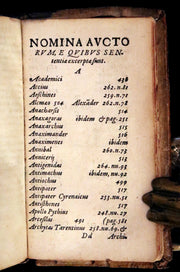 NOMINA AVCTO
RVM, E QVIBVS SEN-
tentiæ excerptæ sunt.
A
Academici 438
Accius 262.n.81
Aeschines 259.n.71
Alcmæo 514 Alexãder 262.n.78
Anacharsis 514
Anaxagoras ibidem & pag.251
Anaxarchus 515
Anaximander 516
Anaximenes ibidem
Annibal 262.n.73
Anniceris 515
Antigenidas 264.n.93
Antimachus 262.n.92
Antiochus 499
Antipater 517
Antipater Cyrenaicus 255.nu.51
Antisthenes 517
Apollo Pythius 248.nu.27
Apostolus 491
Archytas Tarentinus 258.nu.69.&
Dd Archiu